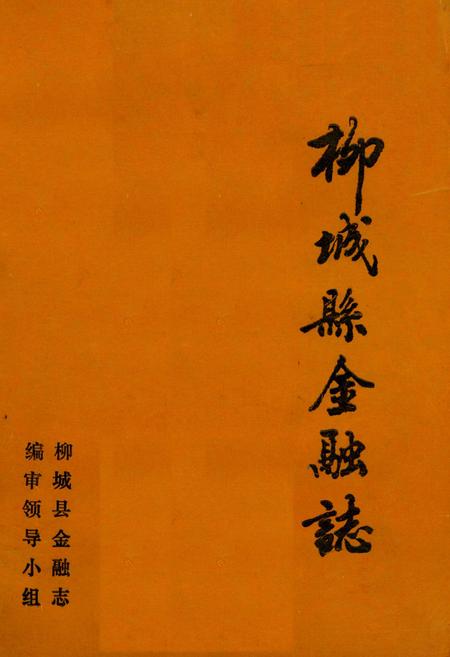 柳城縣金融誌
柳城县金融志
编审领导小组